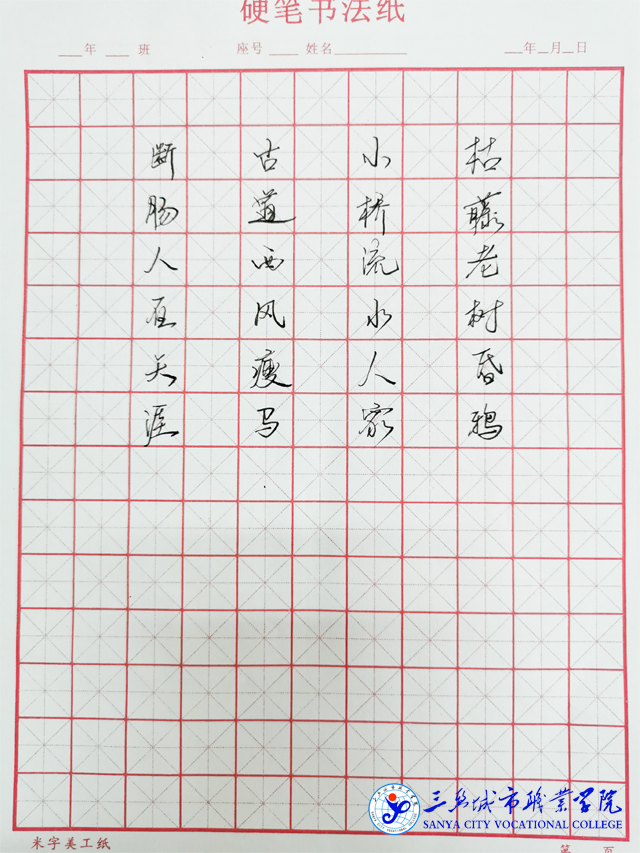 硬笔书法纸
年 班 座号 姓名 年 月 日
枯藤老树昏鸦
小桥流水人家
古道西风瘦马
断肠人在天涯
米字美工纸
第 页
三亚城市職業学院
SANYA CITY VOCATIONAL COLLEGE